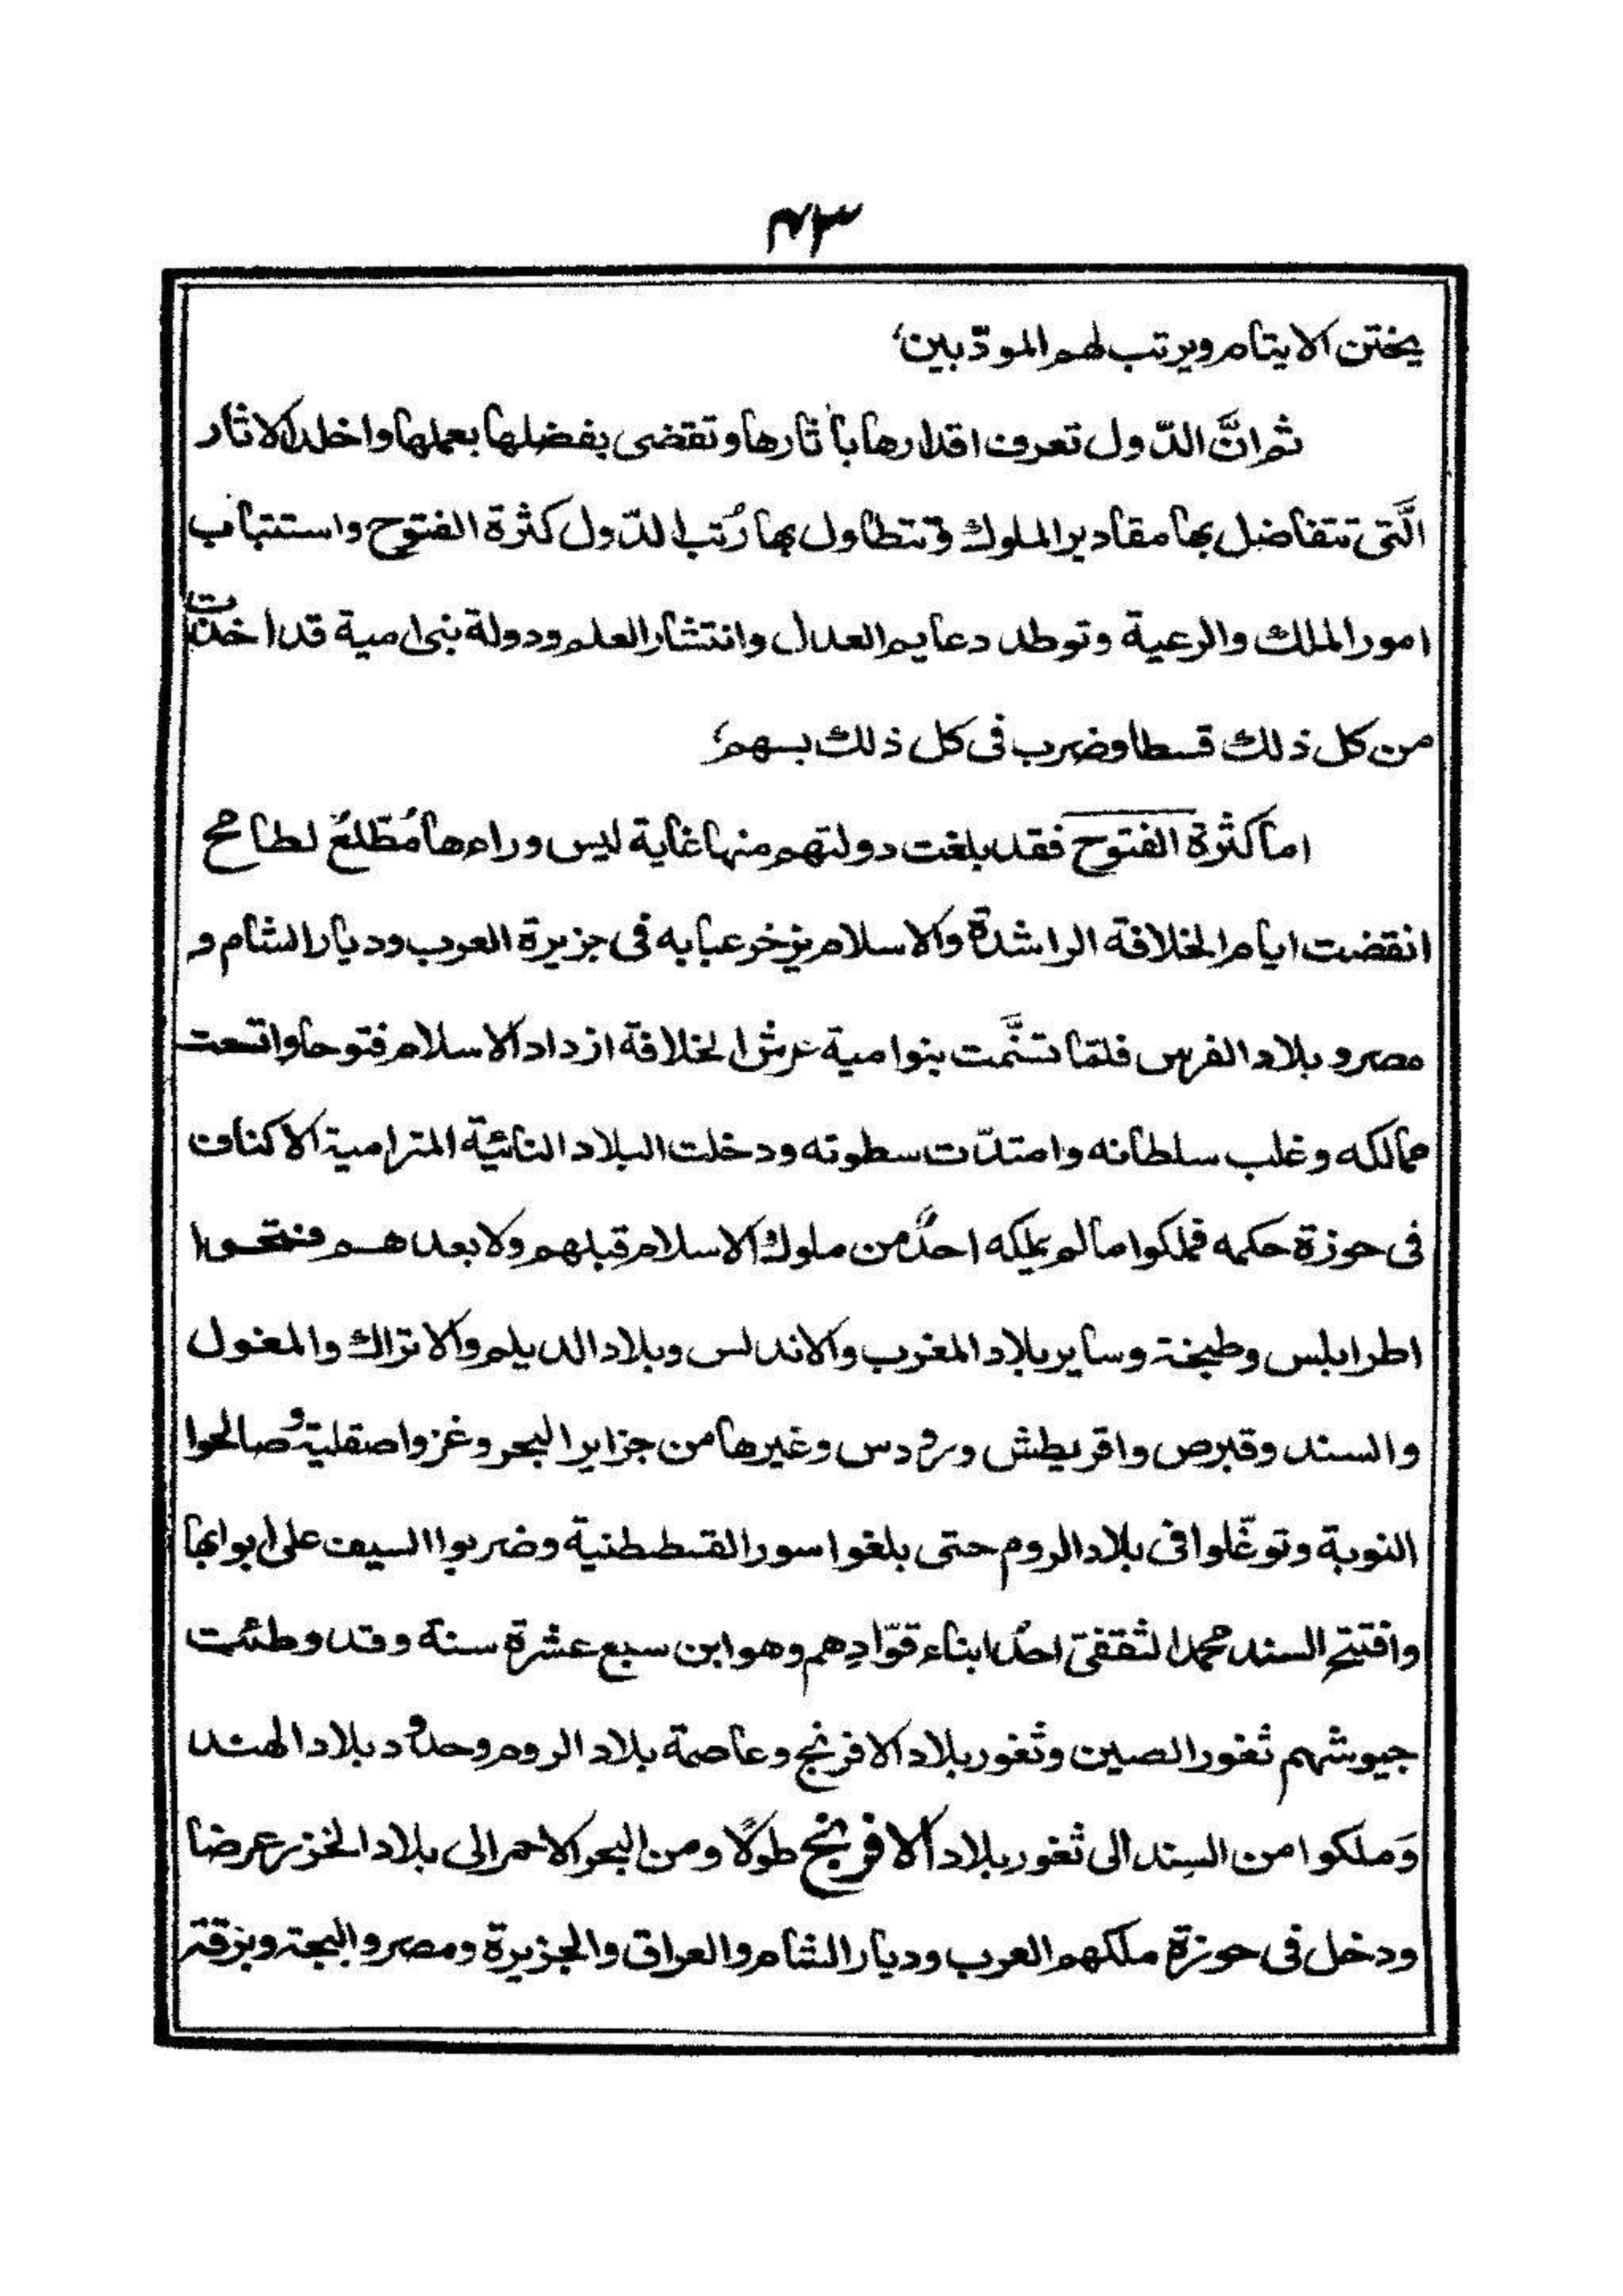 ٤٣
يختن الايتام ويرتب لهم المودّبين،
ثم انَّ الدّول تعرف اقدارها باٰثارها وتقضى بفضلها بعملها واخلد الاثار
الَّتى تتفاضل بها مقادير الملوك وتتطاول بها رُتب الدّول كثرة الفتوح واستتباب
امور الملك والرعية وتوطد دعايم العدل وانتشار العلم ودولة بنى امية قد اخذت
من كل ذلك قسطا وضرب فى كل ذلك بسهم،
اما كثرة الفتوح فقد بلغت دولتهم منها غاية ليس وراءها مُطّلعٌ لطامح
انقضت ايام الخلافة الراشدة والاسلام يزخر عبابه فى جزيرة العرب وديار الشام و
مصر و بلاد الفرس فلمّا تسنَّمت بنوامية عرش الخلافة ازداد الاسلام فتوحا واتّسعت
ممالكه وغلب سلطانه وامتدّت سطوته ودخلت البلاد النائية المترامية الاكناف
فى حوزة حكمه فملكوا مالم يملكه احدٌ من ملوك الاسلام قبلهم ولا بعد هم فتحوا
اطرابلس وطبخة وساير بلاد المغرب والاندلس وبلاد الديلم والاتراك والمغول
والسند وقبرص واقريطش وردس وغيرها من جزاير البحر وغزوا صقلية وصالحوا
النوبة وتوغّلوا فى بلاد الروم حتى بلغوا سور القسطنطنية وضربوا السيف على ابوابها
وافتتح السند محمد الثقفىّ احد ابناء قوّادِهم وهو ابن سبع عشرة سنة وقد وطئت
جيوشهم ثغور الصين وثغور بلاد الافرنج وعاصمة بلاد الروم وحدود بلاد الهند
وَملكوا من السِند الى ثغور بلاد الافرنج طولًا ومن البحر الاحمر الى بلاد الخزر عرضا
ودخل فى حوزة ملكهم العرب وديار الشام والعراق والجزيرة ومصر والبجة وبرقة